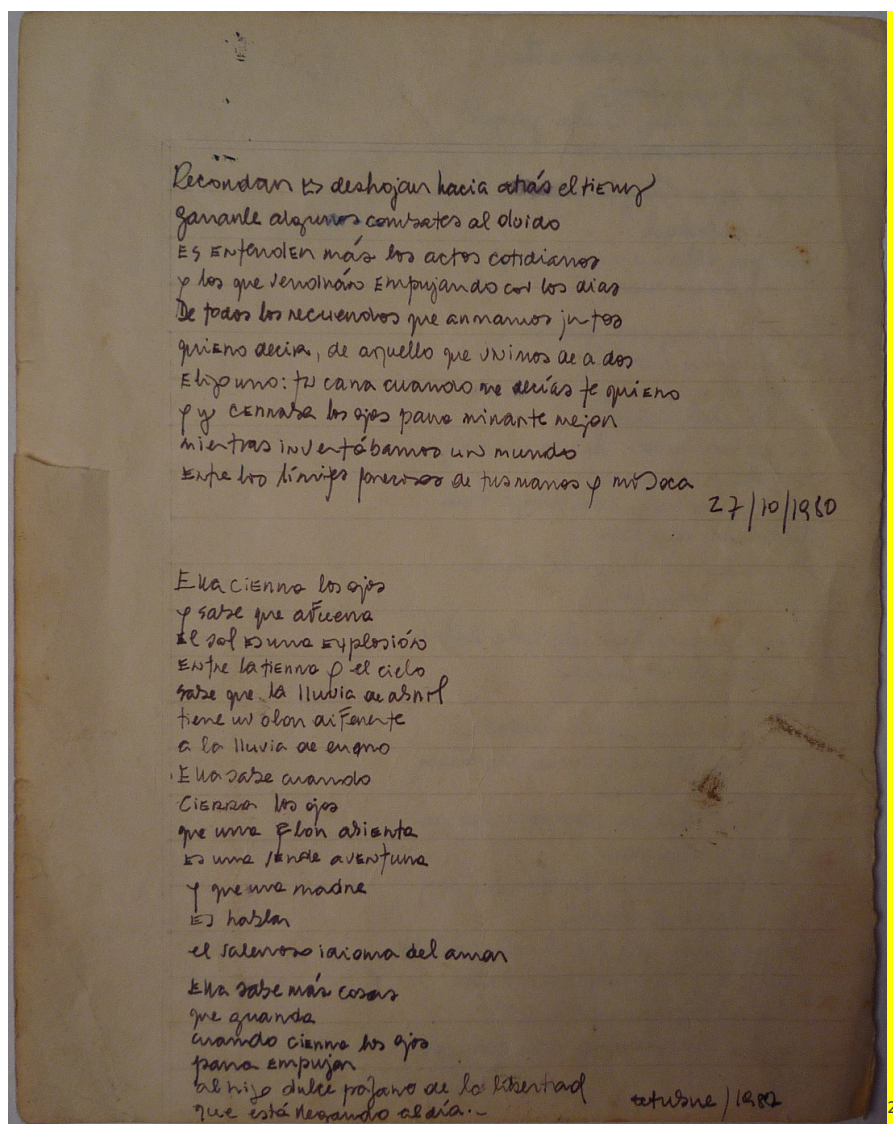 Recordar es deshojar hacia atrás el tiempo
ganarle algunos combates al olvido
Es entender más los actos cotidianos
y los que vendrán empujando con los días
De todos los recuerdos que armamos juntos
quiero decir, de aquello que unimos de a dos
Elijo uno: tu cara cuando me decías te quiero
y yo cerraba los ojos para mirarte mejor
mientras inventábamos un mundo
Entre los límites precisos de tus manos y mi boca
27/10/1980
Ella cierra los ojos
y sabe que afuera
El sol es una explosión
Entre la tierra y el cielo
sabe que la lluvia de abril
tiene un olor diferente
a la lluvia de enero
Ella sabe cuando
cierra los ojos
que una flor abierta
es una verde aventura
y que una madre
es hablar
el valeroso idioma del amor
Ella sabe más cosas
que guarda
cuando cierra los ojos
para empujar
al hijo dulce pájaro de la libertad
que está llegando al día.-
octubre/1982
2